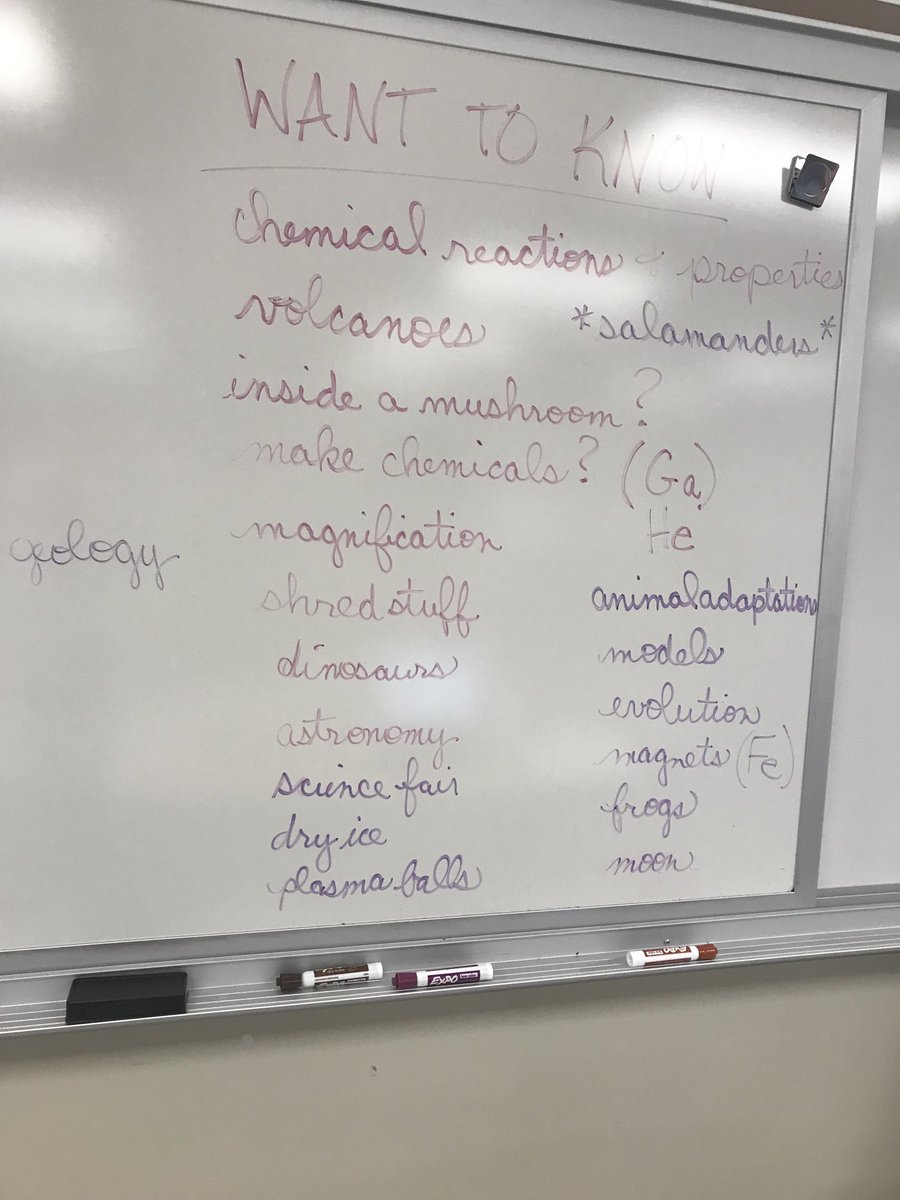 WANT TO KNOW
chemical reactions + properties
volcanoes *salamanders*
inside a mushroom?
make chemicals? (Ga)
magnification He
geology
shred stuff animal adaptations
dinosaurs models
astronomy evolution
science fair magnets (Fe)
dry ice frogs
plasma balls moon
EXPO
EXPO